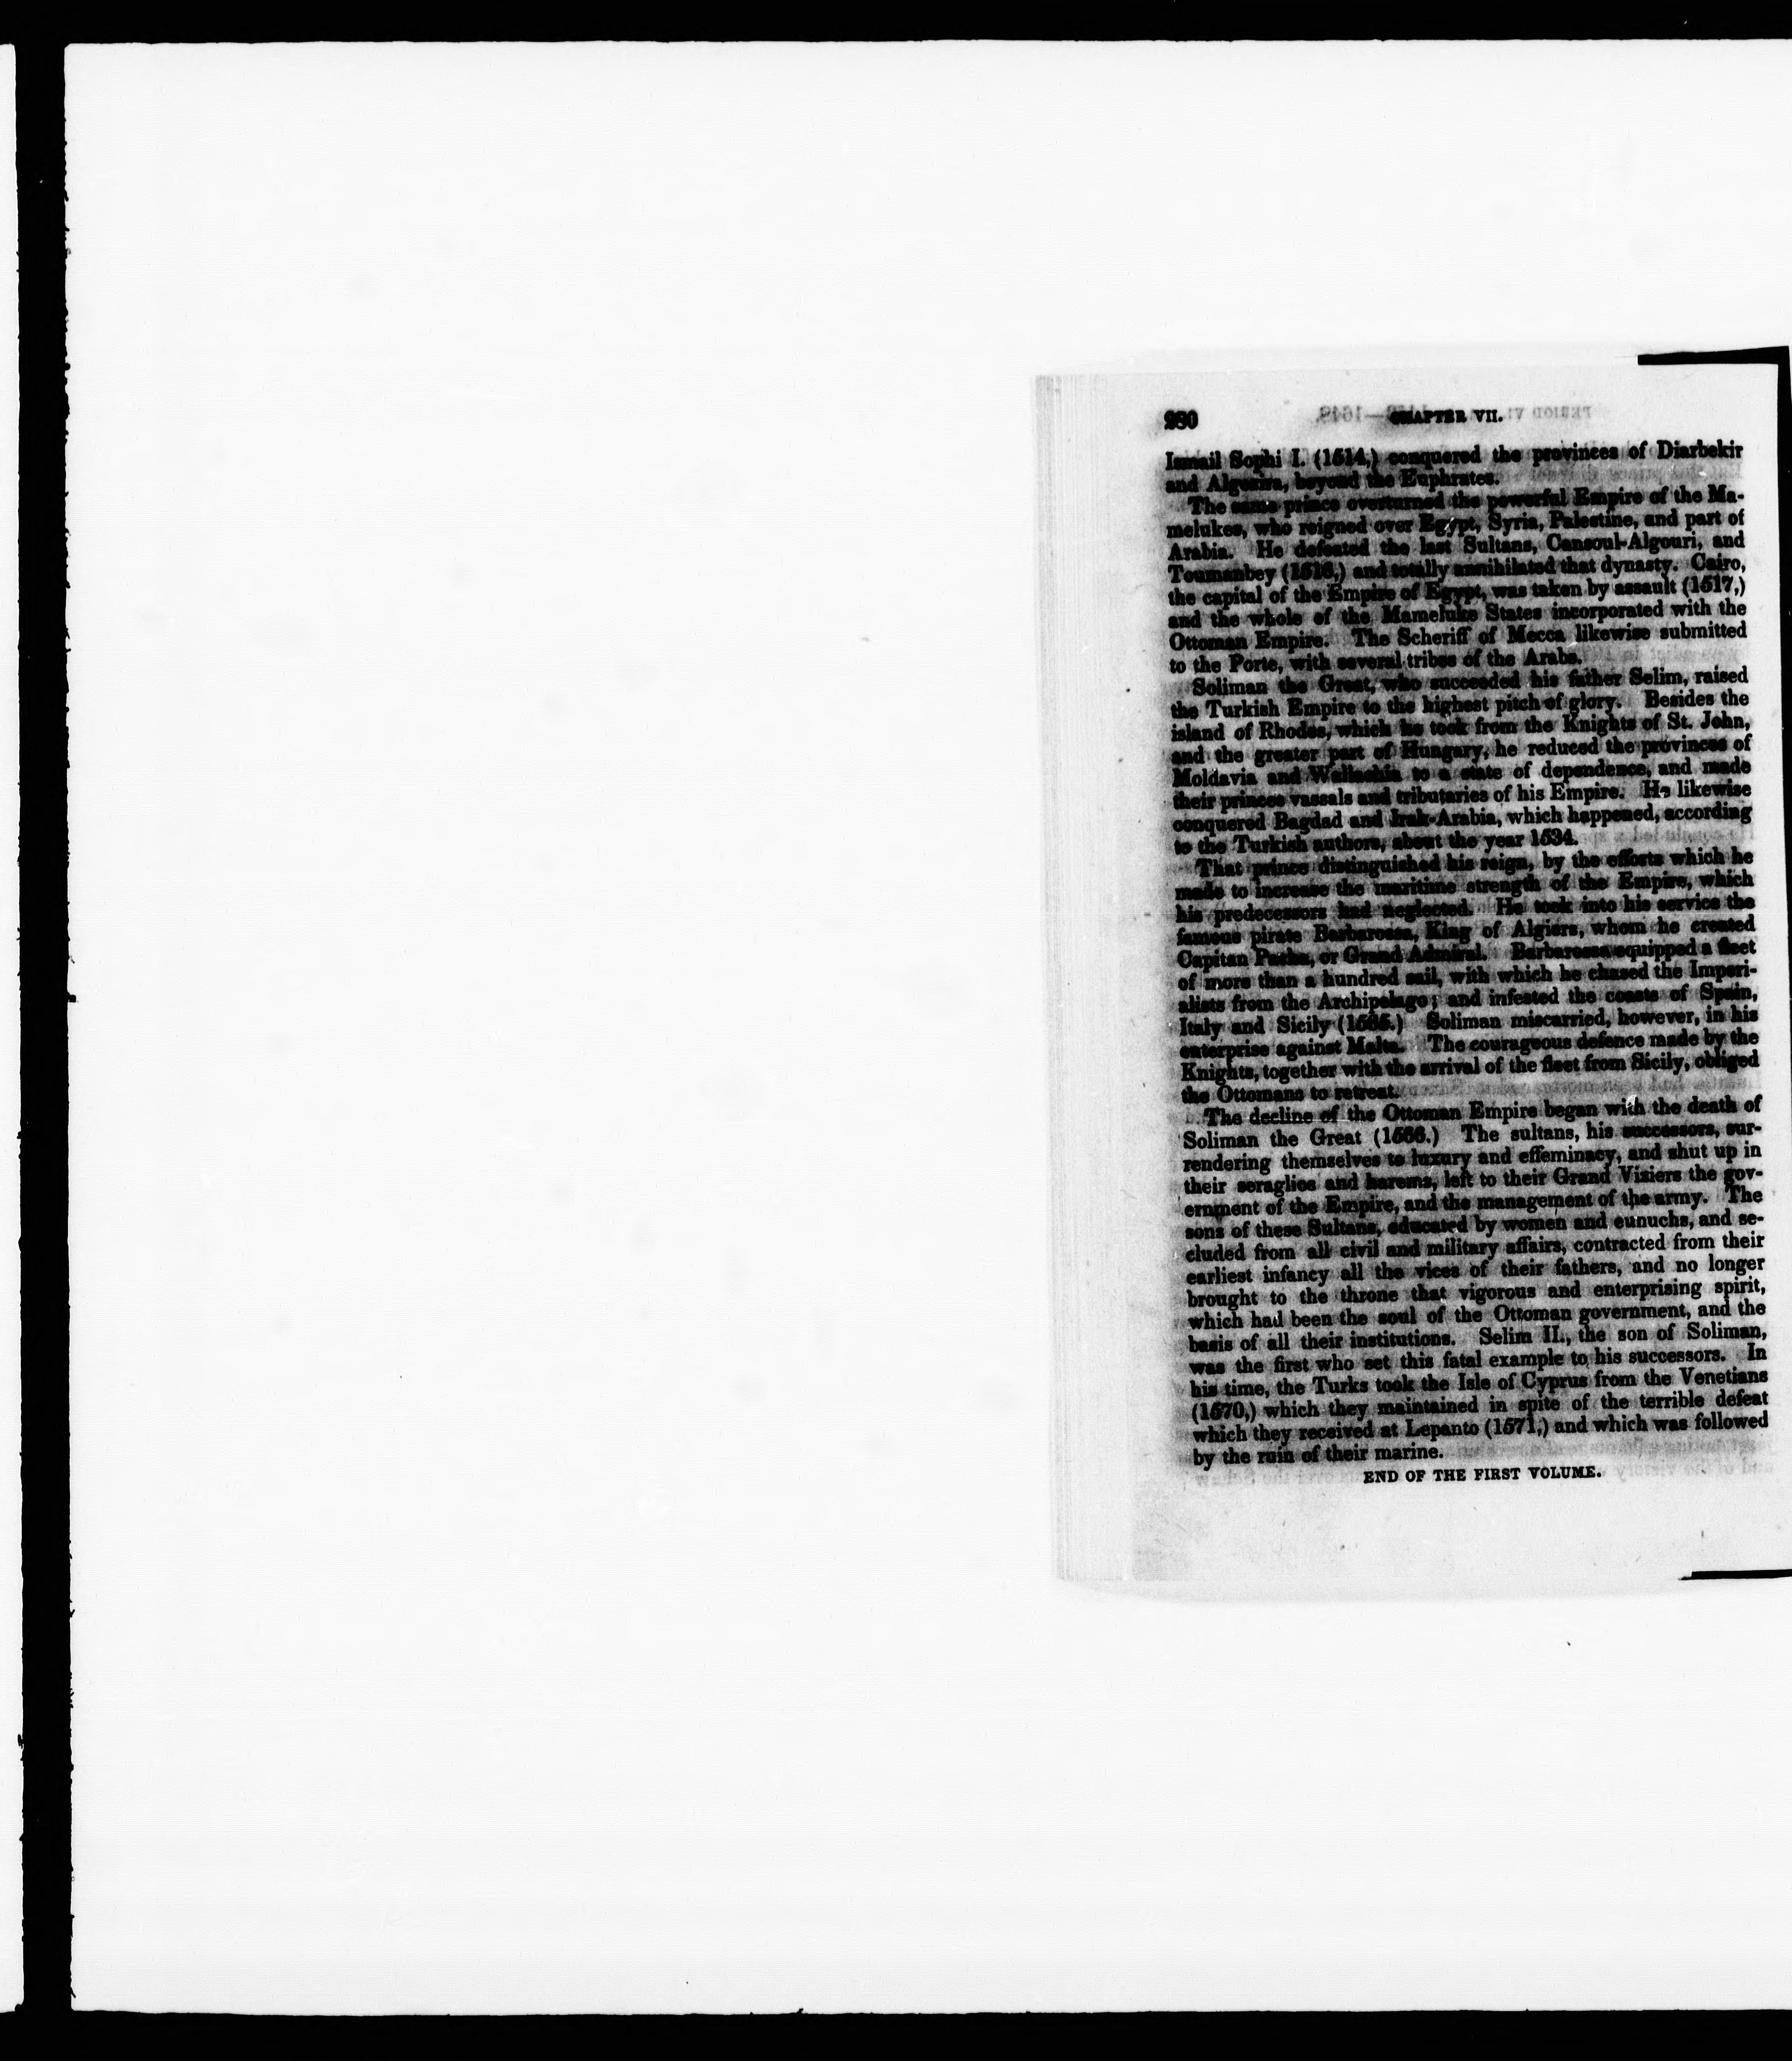 280 CHAPTER VII.
Ismail Sophi I. (1514,) conquered the provinces of Diarbekir
and Algezira, beyond the Euphrates.
The same prince overturned the powerful Empire of the Ma-
melukes, who reigned over Egypt, Syria, Palestine, and part of
Arabia. He defeated the last Sultans, Cansoul-Algouri, and
Toumanbey (1516,) and totally annihilated that dynasty. Cairo,
the capital of the Empire of Egypt, was taken by assault (1517,)
and the whole of the Mameluke States incorporated with the
Ottoman Empire. The Scheriff of Mecca likewise submitted
to the Porte, with several tribes of the Arabs.
Soliman the Great, who succeeded his father Selim, raised
the Turkish Empire to the highest pitch of glory. Besides the
island of Rhodes, which he took from the Knights of St. John,
and the greater part of Hungary, he reduced the provinces of
Moldavia and Wallachia to a state of dependence, and made
their princes vassals and tributaries of his Empire. He likewise
conquered Bagdad and Irak-Arabia, which happened, according
to the Turkish authors, about the year 1534.
That prince distinguished his reign, by the efforts which he
made to increase the maritime strength of the Empire, which
his predecessors had neglected. He took into his service the
famous pirate Barbarossa, King of Algiers, whom he created
Capitan Pacha, or Grand Admiral. Barbarossa equipped a fleet
of more than a hundred sail, with which he chased the Imperi-
alists from the Archipelago; and infested the coasts of Spain,
Italy and Sicily (1565.) Soliman miscarried, however, in his
enterprise against Malta. The courageous defence made by the
Knights, together with the arrival of the fleet from Sicily, obliged
the Ottomans to retreat.
The decline of the Ottoman Empire began with the death of
Soliman the Great (1566.) The sultans, his successors, sur-
rendering themselves to luxury and effeminacy, and shut up in
their seraglios and harems, left to their Grand Viziers the gov-
ernment of the Empire, and the management of the army. The
sons of these Sultans, educated by women and eunuchs, and se-
cluded from all civil and military affairs, contracted from their
earliest infancy all the vices of their fathers, and no longer
brought to the throne that vigorous and enterprising spirit,
which had been the soul of the Ottoman government, and the
basis of all their institutions. Selim II., the son of Soliman,
was the first who set this fatal example to his successors. In
his time, the Turks took the Isle of Cyprus from the Venetians
(1570,) which they maintained in spite of the terrible defeat
which they received at Lepanto (1571,) and which was followed
by the ruin of their marine.
END OF THE FIRST VOLUME.